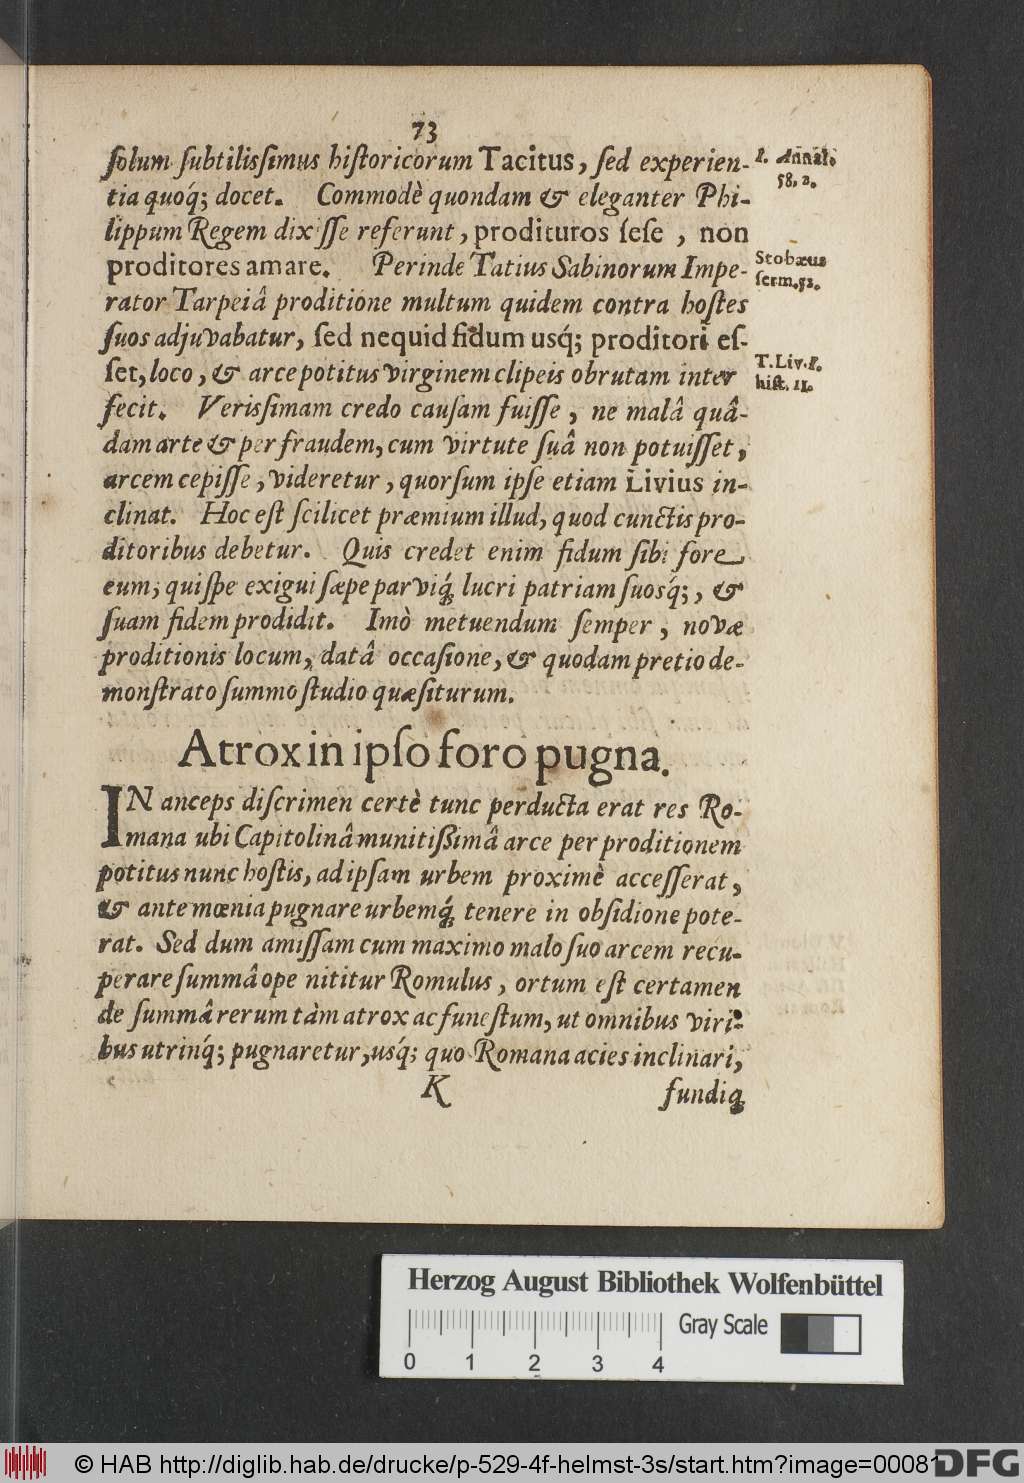 73
ſolum ſubtilisſimus hiſtoricorum Tacitus, ſed experien-
tia quoq́; docet. Commodè quondam & eleganter Phi-
lippum Regem dixiſſe referunt, prodituros ſeſe, non
proditores amare. Perinde Tatius Sabinorum Impe-
rator Tarpeiâ proditione multum quidem contra hoſtes
ſuos adjuvabatur, ſed nequid fidum usq́; proditori eſ-
ſet, loco, & arce potitus virginem clipeis obrutam inter
fecit. Verisſimam credo cauſam fuiſſe, ne malâ quâ-
dam arte & per fraudem, cum virtute ſuâ non potuiſſet,
arcem cepiſſe, videretur, quorſum ipſe etiam Livius in-
clinat. Hoc eſt ſcilicet præmium illud, quod cunctis pro-
ditoribus debetur. Quis credet enim fidum ſibi fore
eum, quiſpe exigui ſæpe parviq́ lucri patriam ſuosq́;, &
ſuam fidem prodidit. Imò metuendum ſemper, novæ
proditionis locum, datâ occaſione, & quodam pretio de-
monſtrato ſummo ſtudio quæſiturum.
1. Annal.
58. 2.
Stobæus
ſerm. 52.
T. Liv. 1.
hiſt. 11.
Atrox in ipſo foro pugna.
IN anceps diſcrimen certè tunc perducta erat res Ro-
mana ubi Capitolinâ munitiſſimâ arce per proditionem
potitus nunc hoſtis, ad ipſam urbem proximè acceſſerat,
& ante mœnia pugnare urbemq́ tenere in obſidione pote-
rat. Sed dum amiſſam cum maximo malo ſuo arcem recu-
perare ſummâ ope nititur Romulus, ortum eſt certamen
de ſummâ rerum tàm atrox ac funeſtum, ut omnibus viri-
bus utrinq́; pugnaretur, usq́; quo Romana acies inclinari,
K fundiq
Herzog August Bibliothek Wolfenbüttel
Gray Scale
0 1 2 3 4
© HAB http://diglib.hab.de/drucke/p-529-4f-helmst-3s/start.htm?image=00081
DFG